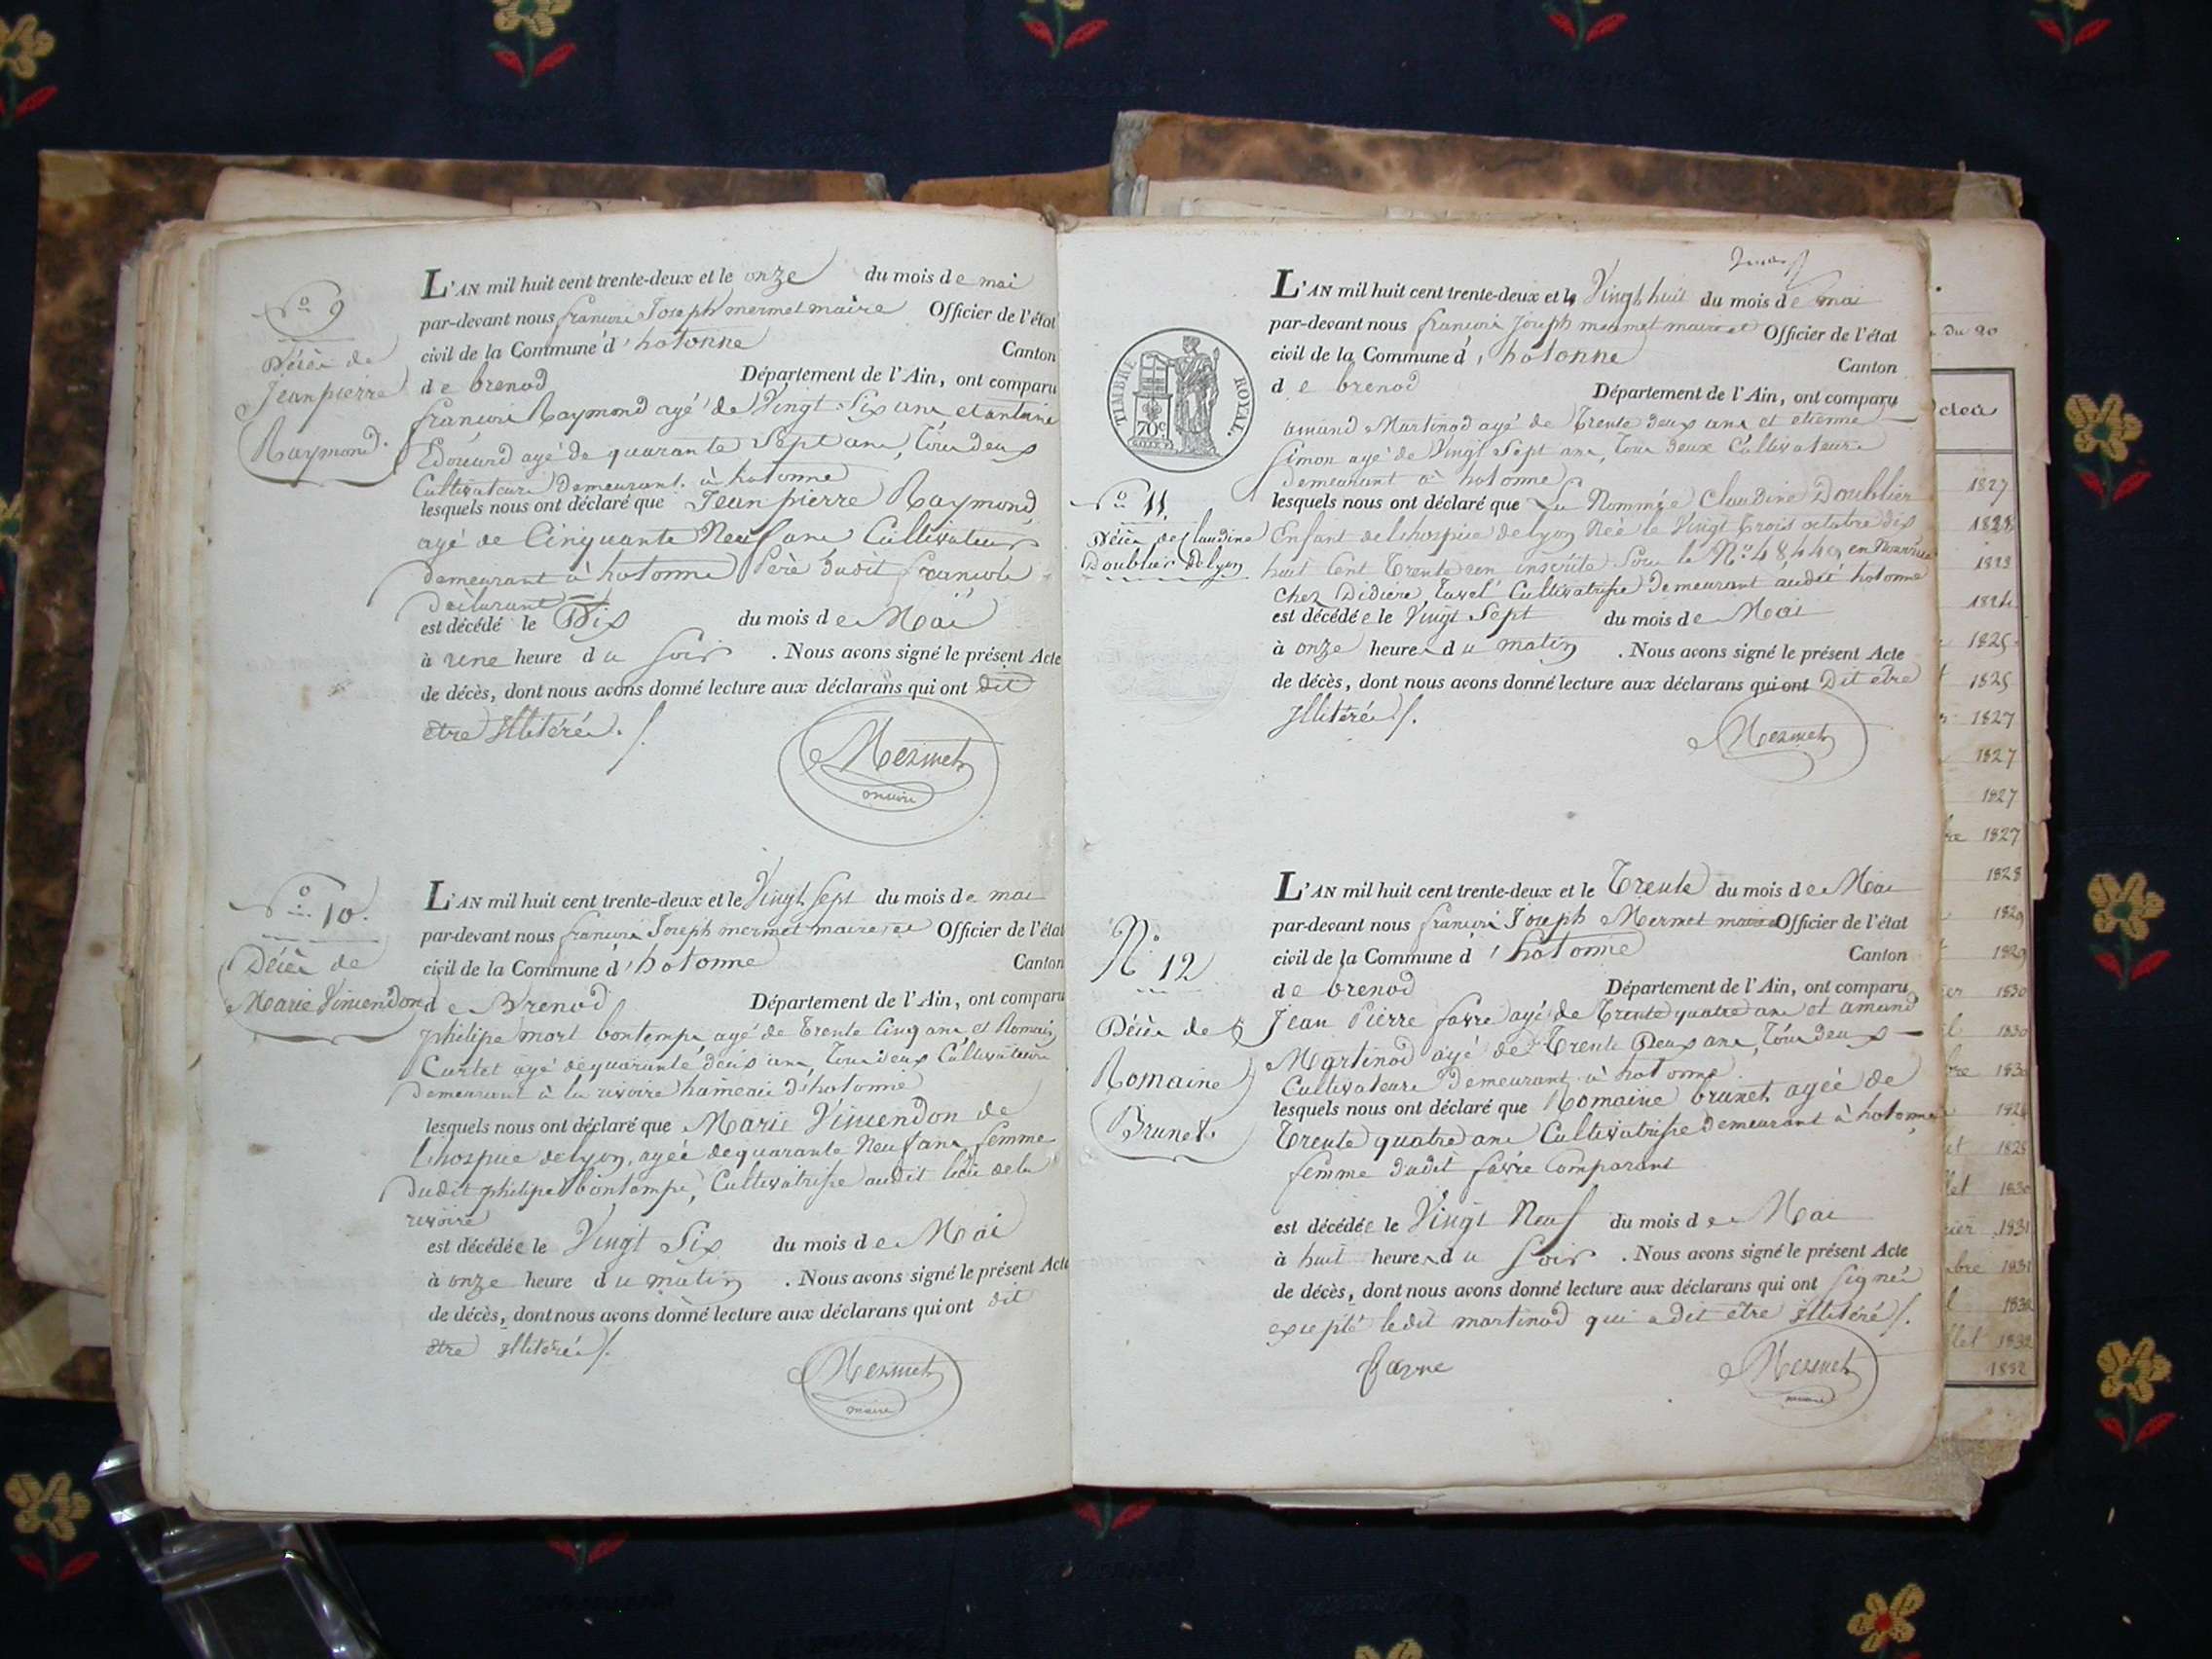 N.o 9
Décès de
Jean pierre
Raymond.
L'AN mil huit cent trente-deux et le onze du mois de mai
par-devant nous françois Joseph mermet maire Officier de l'état
civil de la Commune d'hotonne Canton
de brenod Département de l'Ain, ont comparu
françois Raymond agé de Vingt Six ans et antoine
Edouard agé de quarante Sept ans, tous deux
Cultivateurs demeurant à hotonne
lesquels nous ont déclaré que Jean pierre Raymond
agé de Cinquante Neuf ans Cultivateur
demeurant à hotonne Père dudit françois
déclarant
est décédé le Dix du mois de Mai
à une heure du Soir . Nous avons signé le présent Acte
de décès, dont nous avons donné lecture aux déclarans qui ont dit
être illitérés ./.
Mermet
maire
N.o 10.
Décès de
Marie Vincendon
L'AN mil huit cent trente-deux et le Vingt Sept du mois de mai
par-devant nous françois Joseph mermet maire et Officier de l'état
civil de la Commune d'hotonne Canton
de Brenod Département de l'Ain, ont comparu
philipe mort bontemps agé de trente Cinq ans et Romain
Curtet agé de quarante deux ans, tous deux Cultivateurs
demeurant à la rivoire hameau d'hotonne
lesquels nous ont déclaré que Marie Vincendon de
l'hospice de lyon, agée de quarante Neuf ans femme
dudit philipe bontemps, Cultivatrisse audit lieu de la
rivoire
est décédée le Vingt Six du mois de Mai
à onze heure du matin . Nous avons signé le présent Acte
de décès, dont nous avons donné lecture aux déclarans qui ont dit
être illitérés ./.
Mermet
maire
TIMBRE ROYAL.
70c
N.o 11.
Décès de Claudine
Doublier de lyon
L'AN mil huit cent trente-deux et le Vingt huit du mois de mai
par-devant nous françois Joseph mermet maire et Officier de l'état
civil de la Commune d'hotonne Canton
de brenod Département de l'Ain, ont comparu
amand Martinod agé de Trente deux ans et etienne
Simon agé de Vingt Sept ans, tous deux Cultivateurs
demeurant à hotonne
lesquels nous ont déclaré que La Nommée Claudine Doublier
Enfant de lhospice de lyon Née le Vingt trois octobre dix
huit Cent Trente un inscrite Sous le N.o 48449 en Nourrice
chez Didiere tavel Cultivatrisse demeurant audit hotonne
est décédée le Vingt Sept du mois de Mai
à onze heures du matin . Nous avons signé le présent Acte
de décès, dont nous avons donné lecture aux déclarans qui ont Dit etre
illitérés ./.
Mermet
N.o 12
Décès de
Romaine
Brunet.
L'AN mil huit cent trente-deux et le Trente du mois de Mai
par-devant nous françois Joseph Mermet maire et Officier de l'état
civil de la Commune d'hotonne Canton
de brenod Département de l'Ain, ont comparu
Jean Pierre favre agé de Trente quatre ans et amand
Martinod agé de Trente Deux ans, tous deux
Cultivateurs demeurant à hotonne
lesquels nous ont déclaré que Romaine brunet agée de
Trente quatre ans Cultivatrisse demeurant à hotonne
femme dudit favre Comparant
est décédée le Vingt Neuf du mois de Mai
à huit heures du Soir . Nous avons signé le présent Acte
de décès, dont nous avons donné lecture aux déclarans qui ont signés
excepté ledit martinod qui a dit être illitéré ./.
favre
Mermet
maire
du 20
1827
1828
1825
1825
1827
1827
1827
bre 1827
1828
1829
1829
1830
1830
1830
1828
llet 1830
1831
mbre 1831
1832
llet 1832
1832